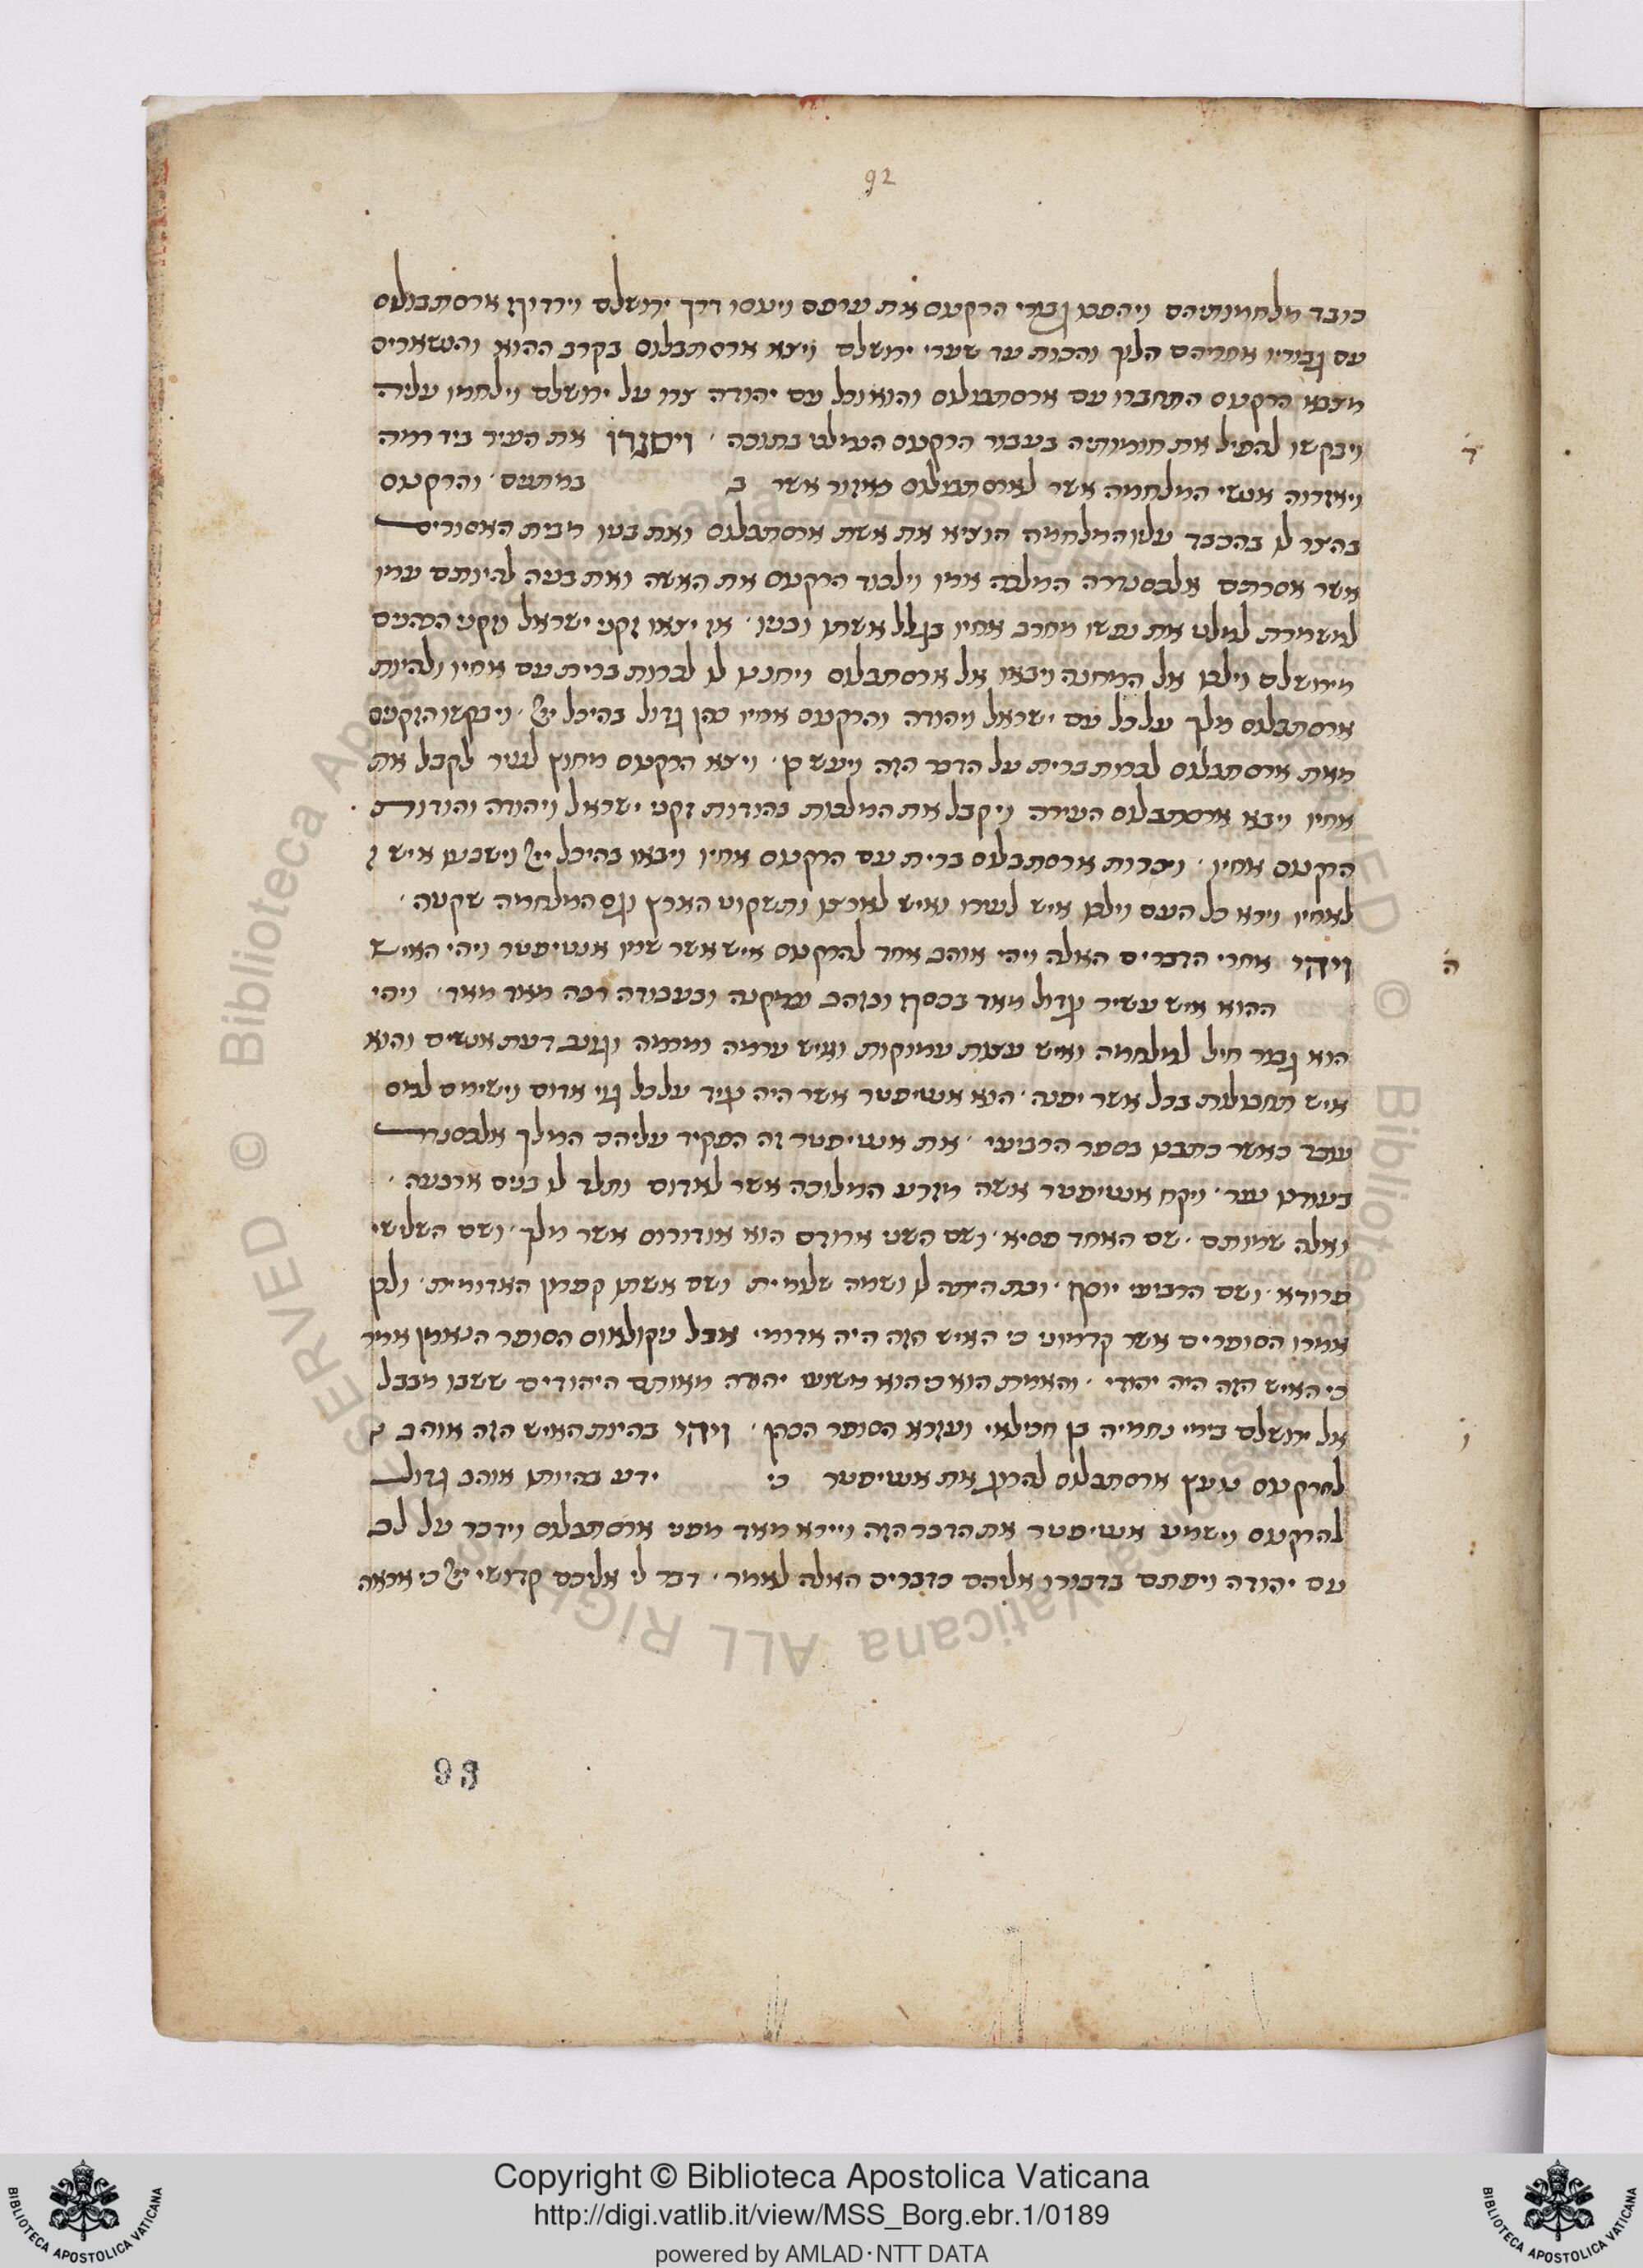 92
כובד מלחמותיהם ויהפכו גבורי הרקנוס את ערפם וינוסו דרך ירושלם וירדוף ארסתבלוס
עם גבוריו אחריהם הלוך והכות עד שערי ירושלם ויצא ארסתבלוס בקרב ההוא והנשארים
מצבא הרקנוס התחברו עם ארסתבלוס והוא וכל עם יהודה צרו על ירושלם וילחמו עליה
ויבקשו להפיל את חומותיה בעבור הרקנוס הנמלט בתוכה ויסגרו את העיר ביד רמה
ד
ויאזרוה אנשי המלחמה אשר לארסתבלוס כאזור אשר ב במתנים והרקנוס
בהצר לו בהכבד עליו המלחמה הוציא את אשת ארסתבלוס ואת בניו מבית האסורים
אשר אסרתם אלכסנדרה המלכה אמו וילכוד הרקנוס את האשה ואת בניה להיותם עמו
למשמרת למלט את נפשו מחרב אחיו בגלל אשתו ובניו אז יצאו זקני ישראל וזקני הכהנים
מירושלם וילכו אל המחנה ויבאו אל ארסתבלוס ויחננו לו לכרות ברית עם אחיו ולהיות
ארסתבלוס מלך על כל עם ישראל ויהודה והרקנוס אחיו כהן גדול בהיכל ייי ויבקשו הזקנים
מאת ארסתבלוס לכרות ברית על הדבר הזה ויעש כן ויצא הרקנוס מחוץ לעיר לקבל את
אחיו ויבא ארסתבלוס העירה ויקבל את המלכות בהודות זקני ישראל ויהודה והודות
הרקנוס אחיו ויכרות ארסתבלוס ברית עם הרקנוס אחיו ויבאו בהיכל ייי וישבעו איש
לאחיו וירא כל העם וילכו איש לעירו ואיש לארצו ותשקוט הארץ וגם המלחמה שקטה
ויהי אחרי הדברים האלה ויהי אוהב אחד להרקנוס איש אשר שמו אנטיפטר ויהי האיש
ה
ההוא איש עשיר גדול מאד בכסף ובזהב ומקנה ובעבודה רבה מאד מאד ויהי
הוא גבור חיל למלחמה ואיש עצות עמוקות ואיש ערמה ומזמה וגונב דעת אנשים והוא
איש תחבולות בכל אשר יפנה הוא אנטיפטר אשר היה נגיד על כל גוי אדום וישימם למס
עובד כאשר כתבנו בספר הרביעי את אנטיפטר זה הפקיד עליהם המלך אלכסנדר
בעודנו נער ויקח אנטיפטר אשה מזרע המלוכה אשר לאדום ותלד לו בנים ארבעה
ואלה שמותם שם האחד פסיא ושם השני ארודס הוא אודורוס אשר מלך ושם השלישי
פרודא ושם הרביעי יוסף ובת היתה לו ושמה שלומית ושם אשתו קפרון האדומית ולכן
אמרו הסופרים אשר קדמונו כי האיש הזה היה אדומי אבל ניקולאוס הסופר הנאמן אמר
כי האיש הזה היה יהודי והאמת הוא כי הוא משועי יהודה מאותם היהודים ששבו מבבל
אל ירושלם בימי נחמיה בן חכליאי ועזרא הסופר הכהן ויהי בהיות האיש הזה אוהב
ו
להרקנוס נועץ ארסתבלוס להרוג את אנטיפטר כי ידע בהיותו אוהב גדול
להרקנוס וישמע אנטיפטר את הדבר הזה ויירא מאד מפני ארסתבלוס וידבר על לב
עם יהודה ויפתם בדבורו אליהם כדברים האלה לאמר דבר לי אליכם קדושי ייי כי אראה
93
Copyright © Biblioteca Apostolica Vaticana
http://digi.vatlib.it/view/MSS_Borg.ebr.1/0189
powered by AMLAD·NTT DATA